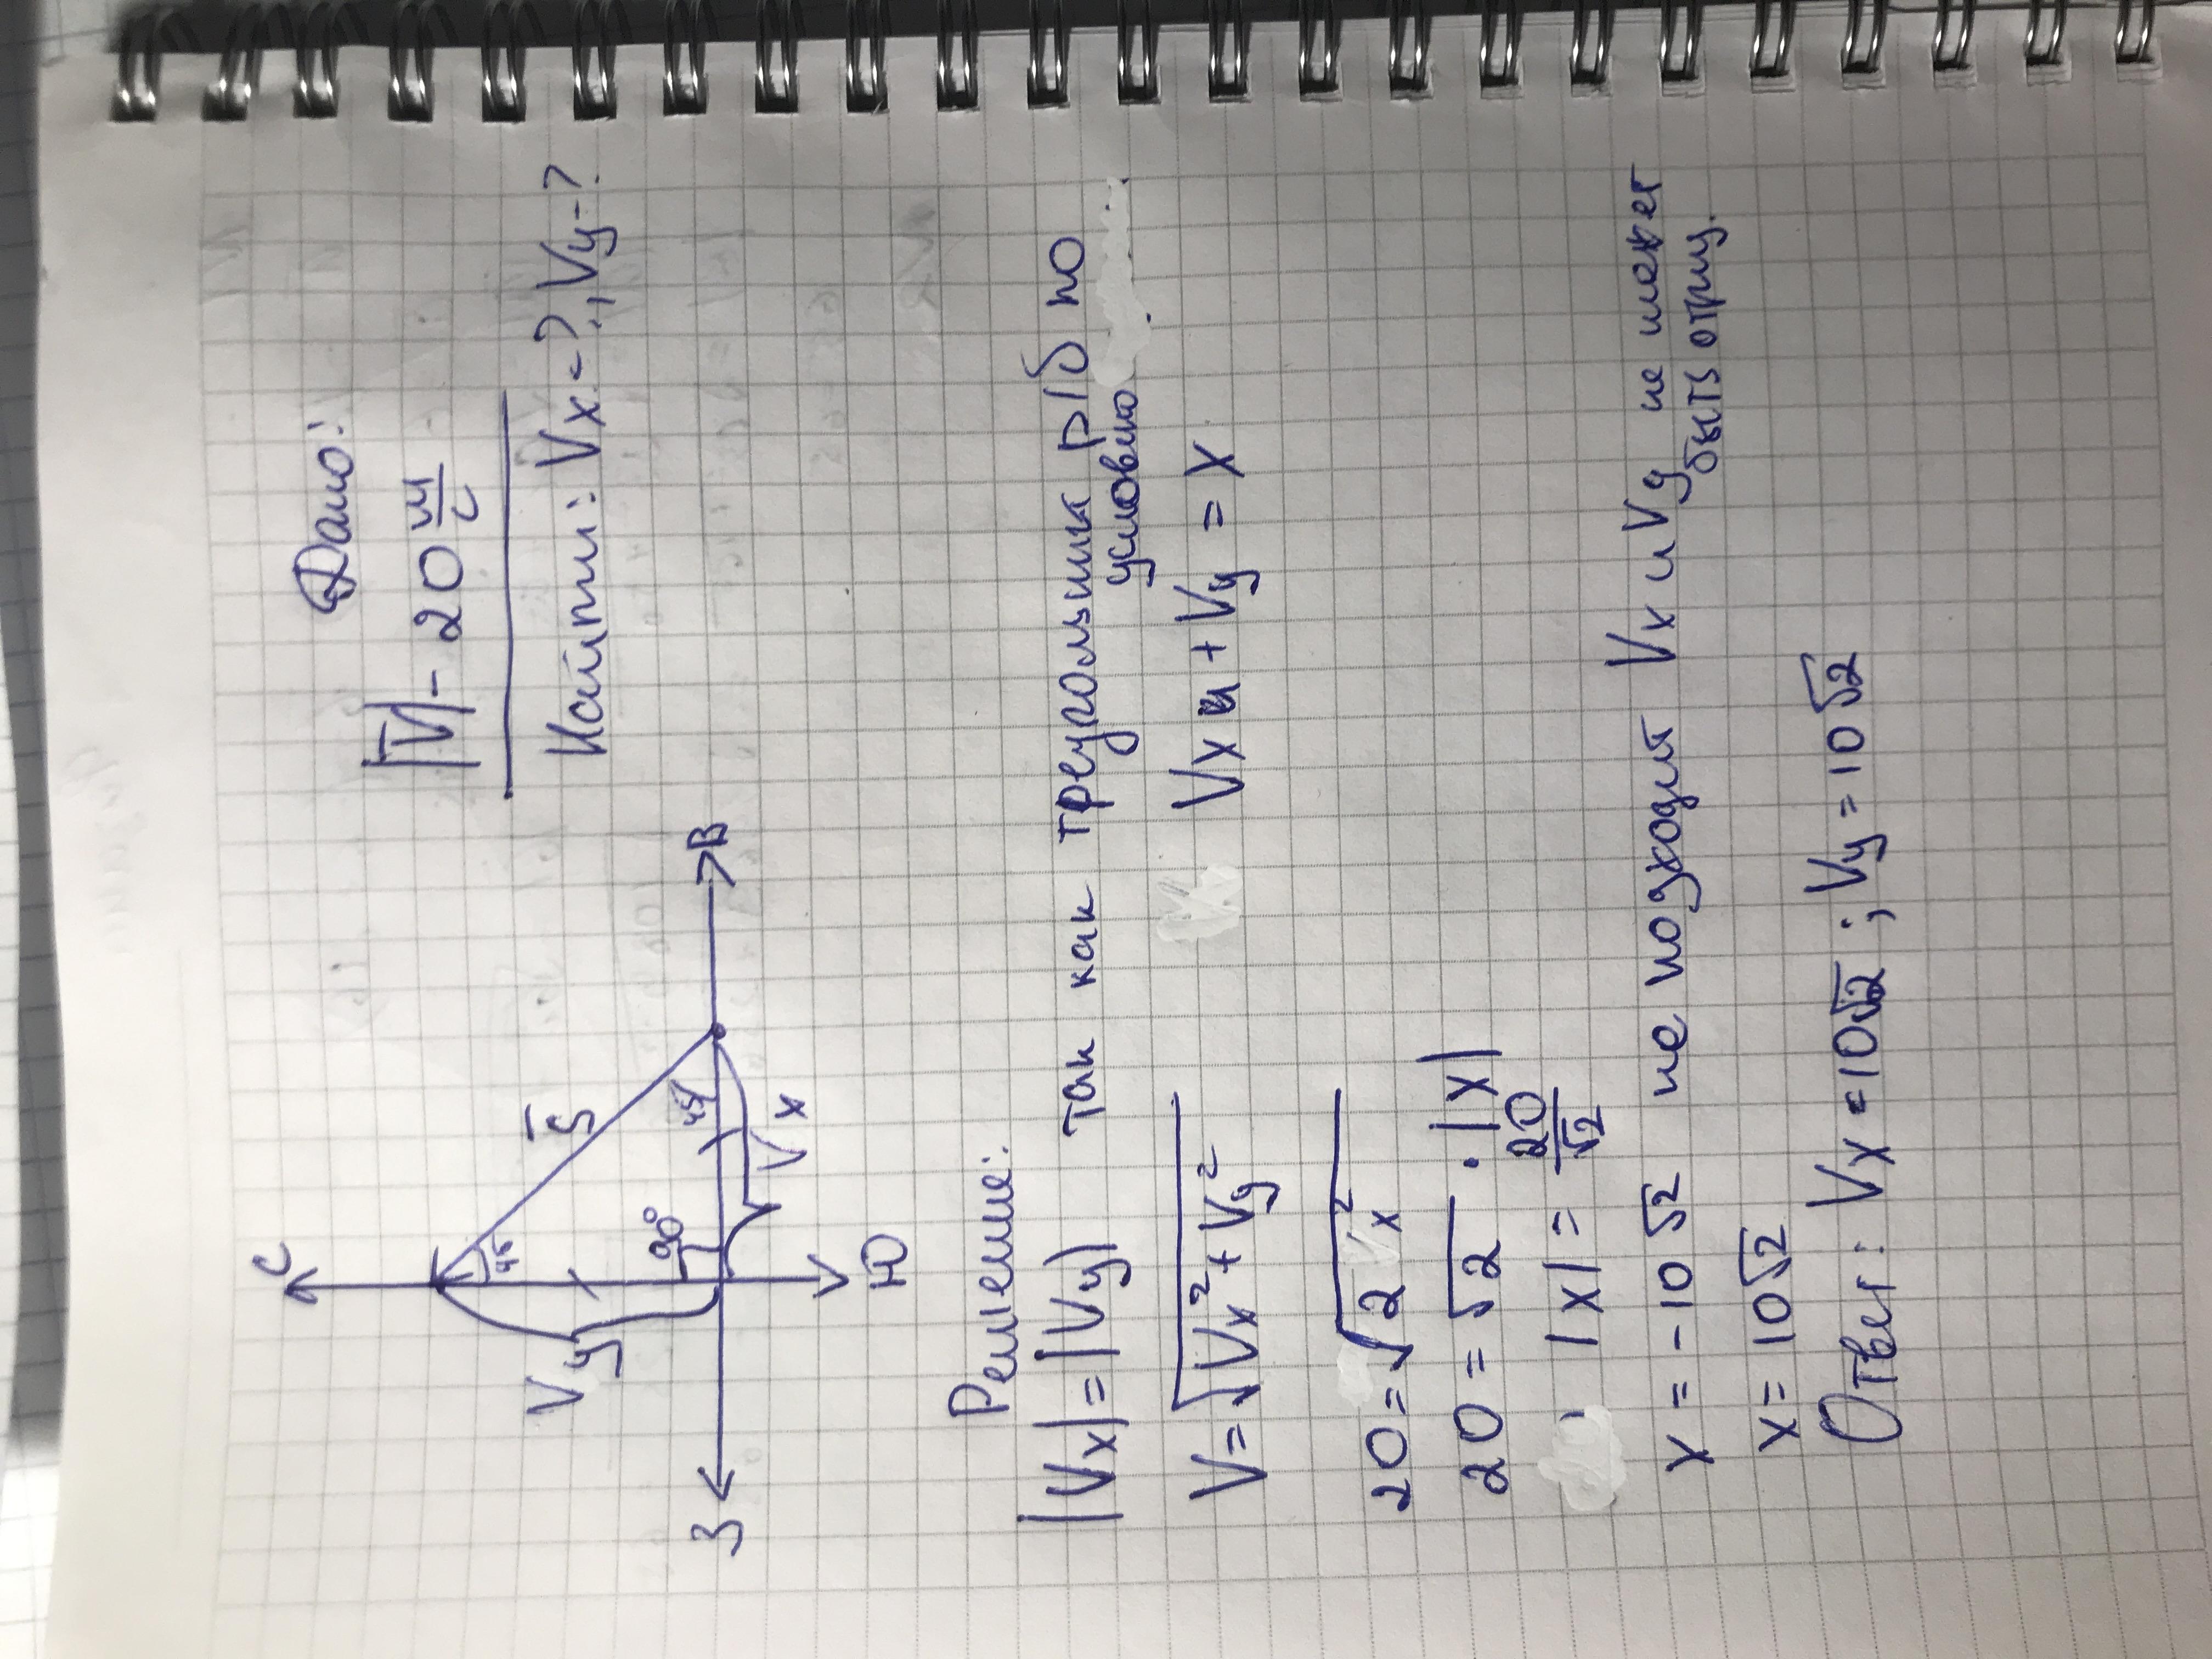 Дано:
|V̅| - 20 м/с
Найти: Vx - ?, Vy - ?
С
45
S̅
Vy
90°
45
З
В
Vx
Ю
Решение:
|Vx| = |Vy| так как треугольник р/б по
условию
V = √(Vx² + Vy²) Vx и Vy = x
20 = √(2x²)
20 = √2 · |x|
|x| = 20/√2
x = -10√2 не подходит Vx и Vy не может
быть отриц.
x = 10√2
Ответ: Vx = 10√2 ; Vy = 10√2